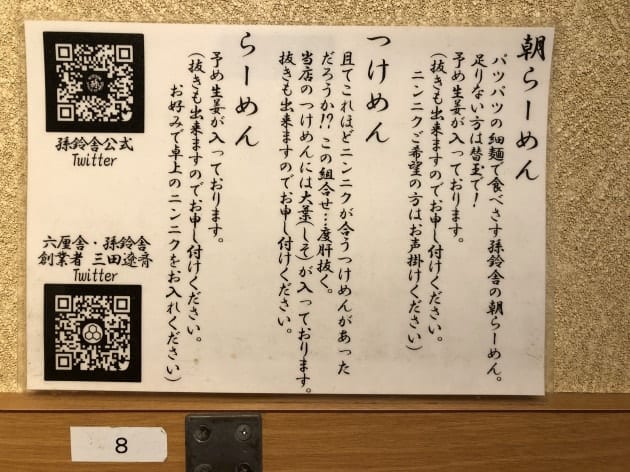 朝らーめん
パツパツの細麺で食べさす孫鈴舎の朝らーめん。
足りない方は替玉で!
予め生姜が入っております。
(抜きも出来ますのでお申し付けください。
ニンニクご希望の方はお声掛けください)
つけめん
且てこれほどニンニクが合うつけめんがあった
だろうか!?この組合せ…度肝抜く。
当店のつけめんには大葉(しそ)が入っております。
抜きも出来ますのでお申し付けください。
らーめん
予め生姜が入っております。
(抜きも出来ますのでお申し付けください。
お好みで卓上のニンニクをお入れください)
孫鈴舎公式
Twitter
六厘舎・孫鈴舎
創業者 三田遼斉
Twitter
8